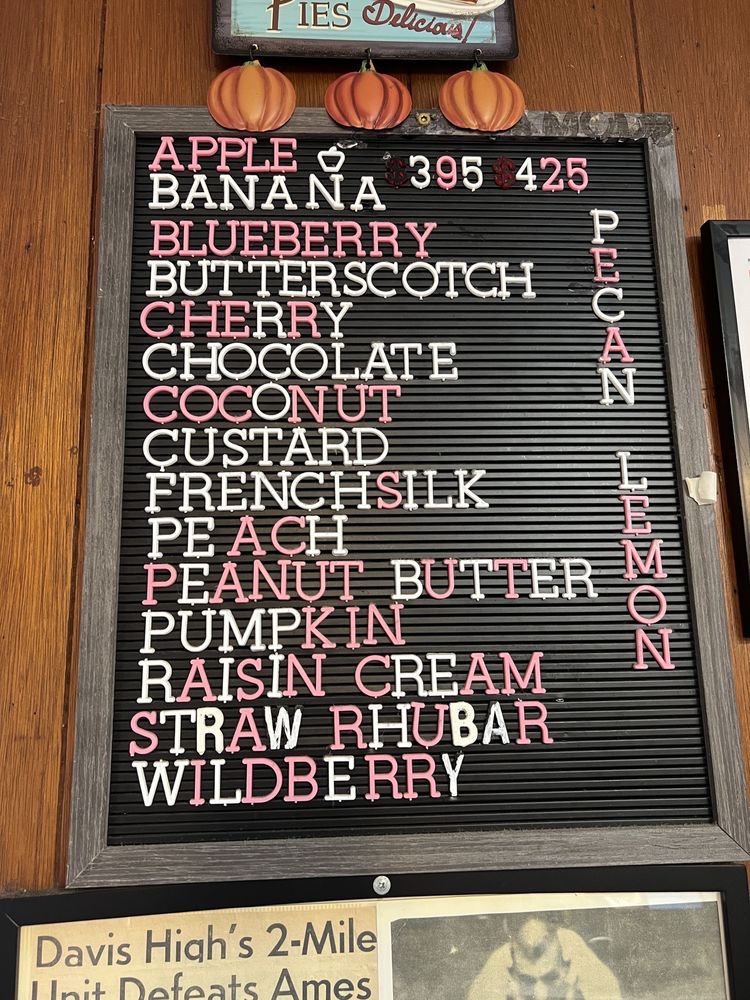 PIES Delicious!
APPLE $395 $425
BANANA
BLUEBERRY
BUTTERSCOTCH
CHERRY
CHOCOLATE
COCONUT
CUSTARD
FRENCHSILK
PEACH
PEANUT BUTTER
PUMPKIN
RAISIN CREAM
STRAW RHUBAR
WILDBERRY
PECAN
LEMON
Davis High's 2-Mile
Unit Defeats Ames